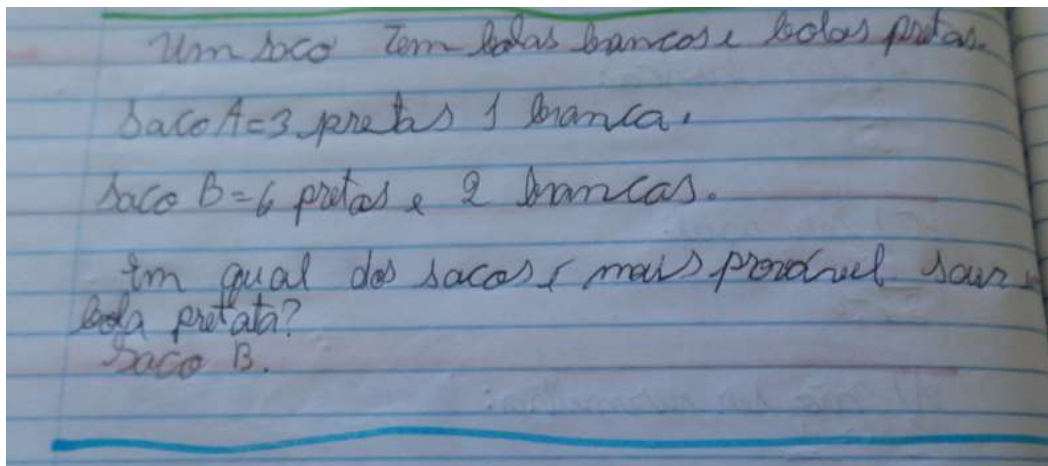 Um saco Tem bolas bancos e bolas pretas.
Saco A=3 pretas 1 branca.
Saco B=6 pretas e 2 brancas.
Em qual dos sacos é mais provável sair
bola pretata?
Saco B.